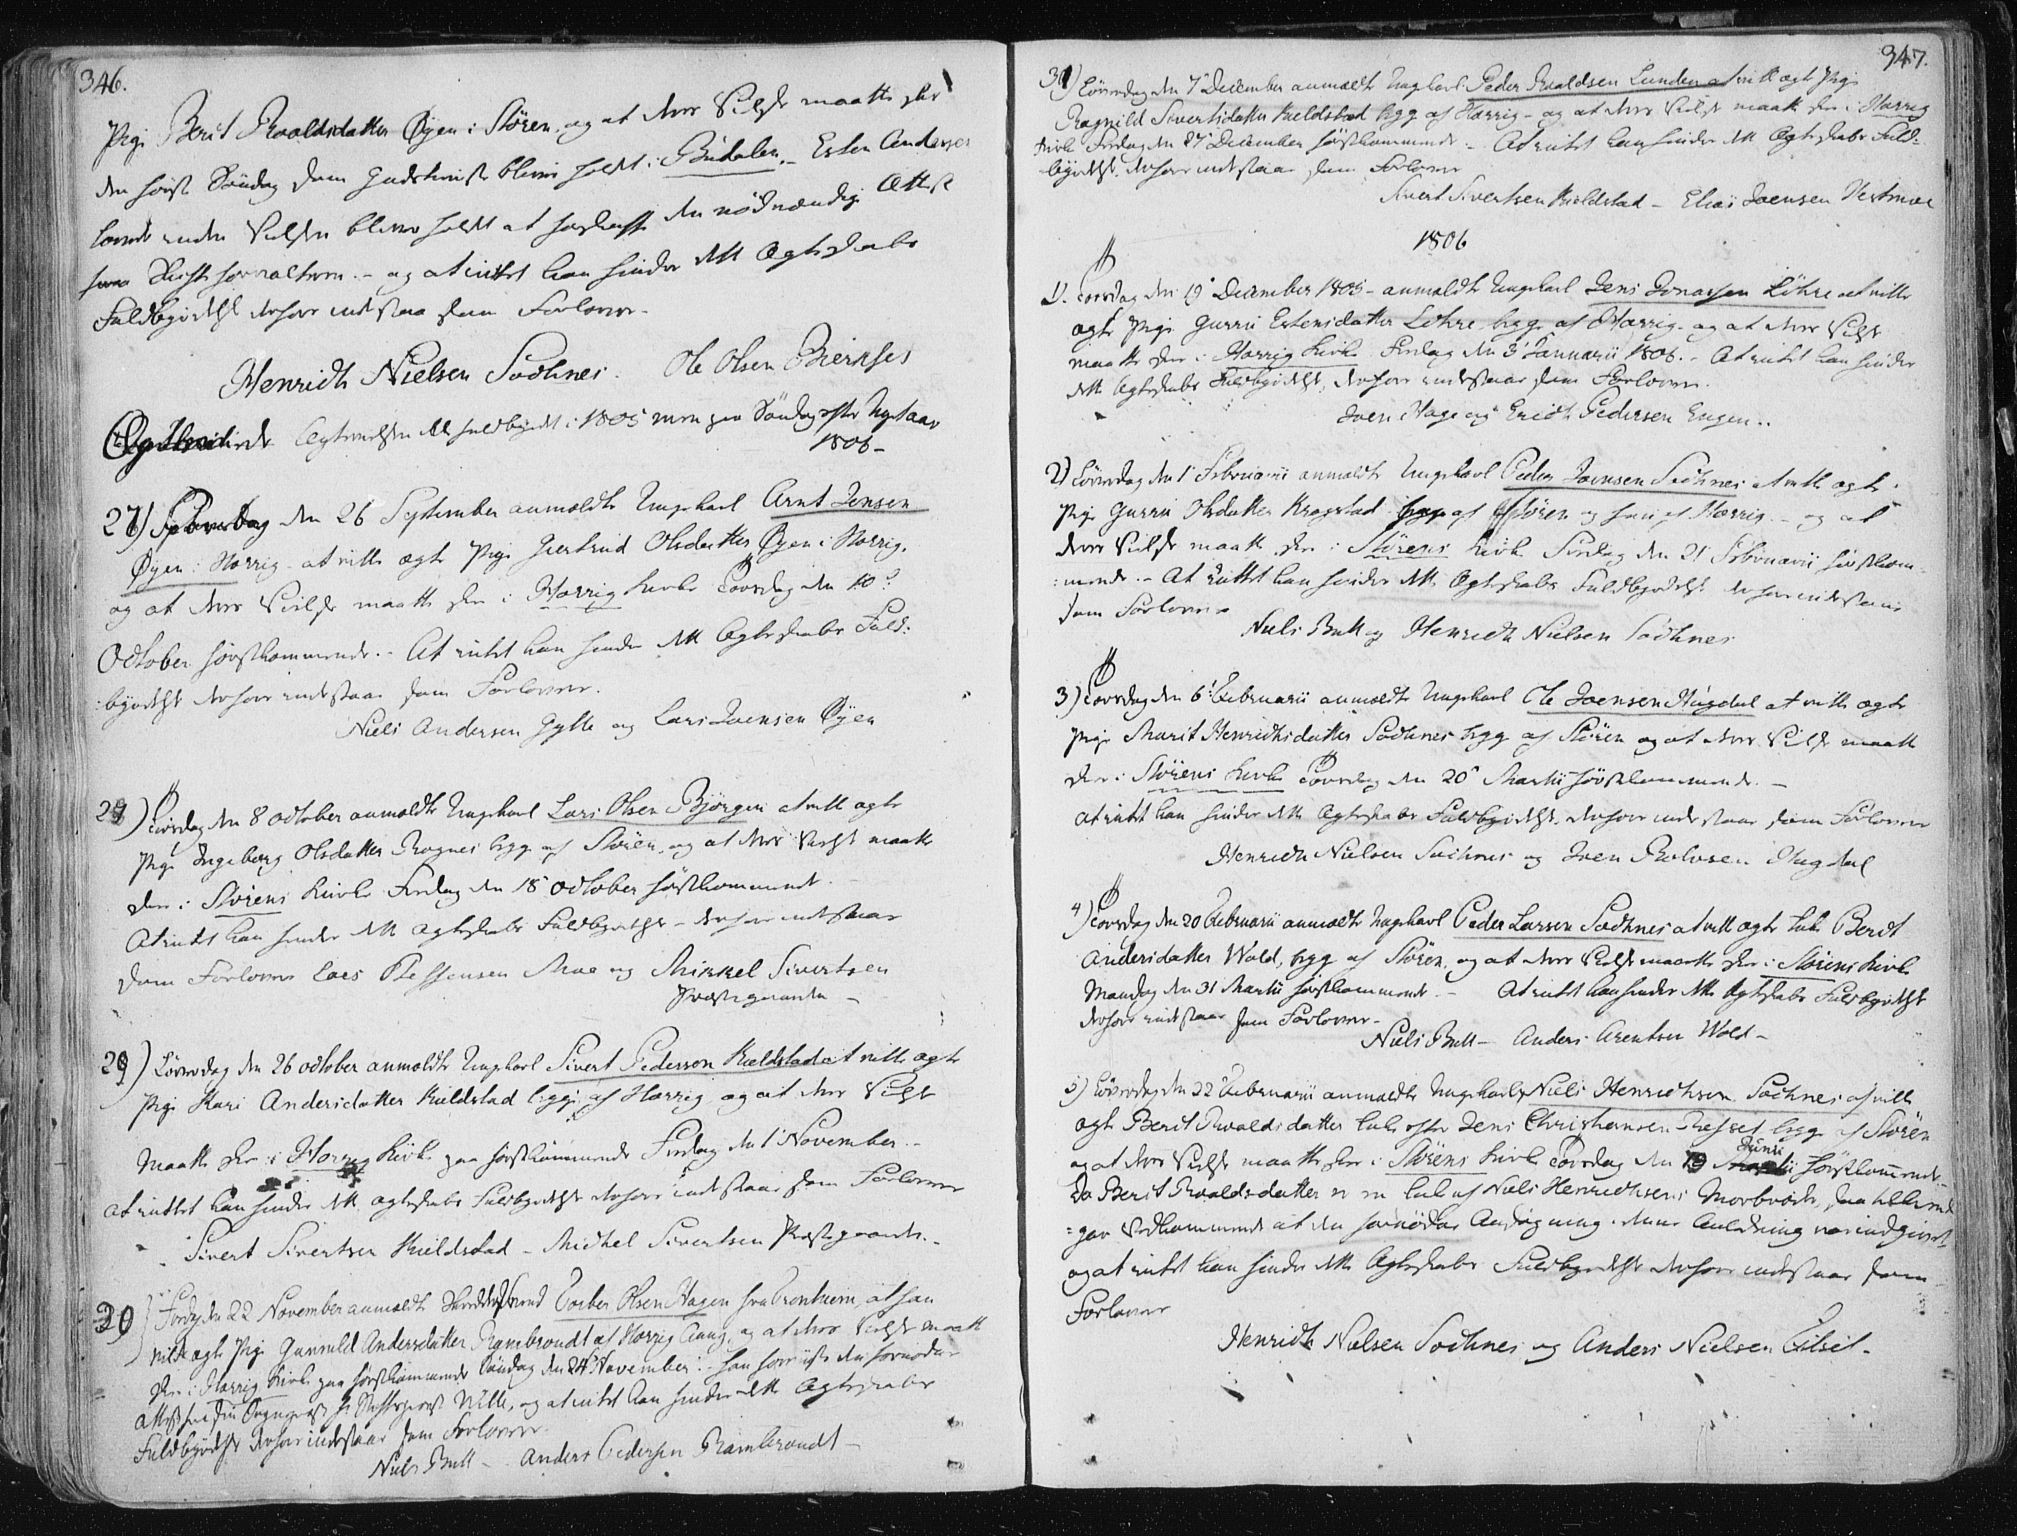 346.
Pige Berit Roaldsdatter Øyen i Stören, og at deres Vielse maatte skee
den først Söndag som Gudstieneste blever holdt i Budalen. Esten Andersen
lovede inden Vielsen blever holdt at forskaffe den nödvendige Attest
fra Skifteforvalteren. - og at intet kan hindre dette Ægteskabs
Fuldbyrdelse derfore indestaae som Forlovere.
Henrich Nielsen Sochnes. Ole Olsen Bierkses
Ægtevielsen fuldbyrdet i 1805 men paa Söndag efter Nytaar
1806 -
27) den 26 September anmeldte Ungekarl Arnt Jensen
Øyen i Horrig at ville ægte Pige Giertrud Olsdatter Øyen i Horrig.
og at deres Vielse maatte skee i Horrig Kirke Torsdag den 10de
October förstkommende. - At intet kan hindre dette Ægteskabs Fuld-
byrdelse derfore indestaar som Forlovere.
Niels Andersen Gylle og Lars Joensen Øyen
28) Tiirsdag den 8 October anmeldte Ungekarl Lars Olsen Björgen at ville ægte
Pige Ingeborg Olsdatter Rognes begge af Stören, og at deres Vielse maatte
skee i Störens Kirke Fredag den 18de October förstkommende.
At intet kan hindre dette Ægteskabs Fuldbyrdelse - derfore indestaaer
som Forlovere Lars Moe og Mikkel Sivertsen
Præstegaarden -
29) Löverdag den 26 October anmeldte Ungekarl Sivert Pedersen Kieldstad at ville ægte
Pige Kari Andersdatter Kieldstad begge af Horrig og at deres Vielse
maatte skee i Horrig Kirke paa förstkommende Fredag den 1de November. -
At intet kan hindre dette Ægteskabs Fuldbyrdelse derfore indestaar som Forlovere
Sivert Sivertsen Kieldstad - Michel Sivertsen Præstegaarde. -
30) Fredag den 22 November anmeldte Torber Olsen Hagen fra Tronhiem, at han
vilde ægte Pige Gunnild Andersdatter Rambroudt af Horrig Annex, og at deres Vielse maatte
skee i Horrig Kirke paa förstkommende Söndag den 24de November. - Han foreviiste den fornödne
Attest fra sin Sognepræst og at intet kan hindre dette Ægteskabs
Fuldbyrdelse derfore indestaar som Forlovere.
Niels Bull - Anders Pedersen Rambroudt -
347.
31) Löverdag den 7de December anmeldte Ungekarl Peder Roaldsen Lunden at ville ægte Pige
Ragnild Sivertsdatter Kieldstad begge af Horrig - og at deres Vielse maatte skee i Horrig
Kirke Fredag den 27de December förstkommende. - At intet kan hindre dette Ægteskabs Fuld-
byrdelse, derfore indestaar som Forlovere
Sivert Sivertsen Kieldstad - Elias Joensen Vestmoe
1806
1). Torsdag den 19de December 1805 - anmeldte Ungekarl Jens Jonassen Löhre at ville
ægte Pige Gurru Estensdatter Löhre, begge af Horrig. og at deres Vielse
maatte skee i Horrig Kirke Fredag den 3de Januarii 1806. - At intet kan hindre
dette Ægteskabs Fuldbyrdelse, derfore indestaar som Forlovere.
Joen Hage og Erich Pedersen Engen..
2) Löverdag den 1de Februarii anmeldte Ungekarl Peder Joensen Sochnes at ville ægte
Pige Gurru Olsdatter Kragstad af Stören og han af Horrig. - og at
deres Vielse maatte skee i Störens Kirke Fredag den 21de Februarii förstkom-
mende. - At intet kan hindre dette Ægteskabs Fuldbyrdelse derfore indestaaer
som Forlovere
Niels Bull og Henrich Nielsen Sochnes
3) Torsdag den 6de Februarii anmeldte Ungekarl Ole Joensen Hugdal at ville ægte
Pige Marit Henrichsdatter Sochnes begge af Stören og at deres Vielse maatte
skee i Störens Kirke Torsdag den 20de Martii förstkommende. -
At intet kan hindre dette Ægteskabs Fuldbyrdelse, derfore indestaar som Forlovere
Henrich Nielsen Sochnes og Joen Hugdal
4) Torsdag den 20 Februarii anmeldte Ungekarl Peder Larsen Sochnes at ville ægte Enke Berit
Andersdatter Wold, begge af Stören, og at deres Vielse maatte skee i Störens Kirke
Mandag den 31 Martii förstkommende. - At intet kan hindre dette Ægteskabs Fuldbyrdelse
derfore indestaar som Forlovere. -
Niels Bull - Anders Arentsen Wold -
5) Löverdag den 22de Februarii anmeldte Ungekarl Niels Henrichsen Sochnes at ville
ægte Berit Roaldsdatter Enke efter Jens Christiansen begge af Stören
og at deres Vielse maatte skee i Störens Kirke Torsdag den 19 Junii förstkommende. -
Da Berit Roaldsdatter er en Enke af Niels Henrichsens Morbroder,
gav Vedkommende at den fornödne Ansögning i den Anledning var indgivet.
og at intet kan hindre dette Ægteskabs Fuldbyrdelse derfore indestaar som
Forlovere
Henrich Nielsen Sochnes og Anders Nielsen